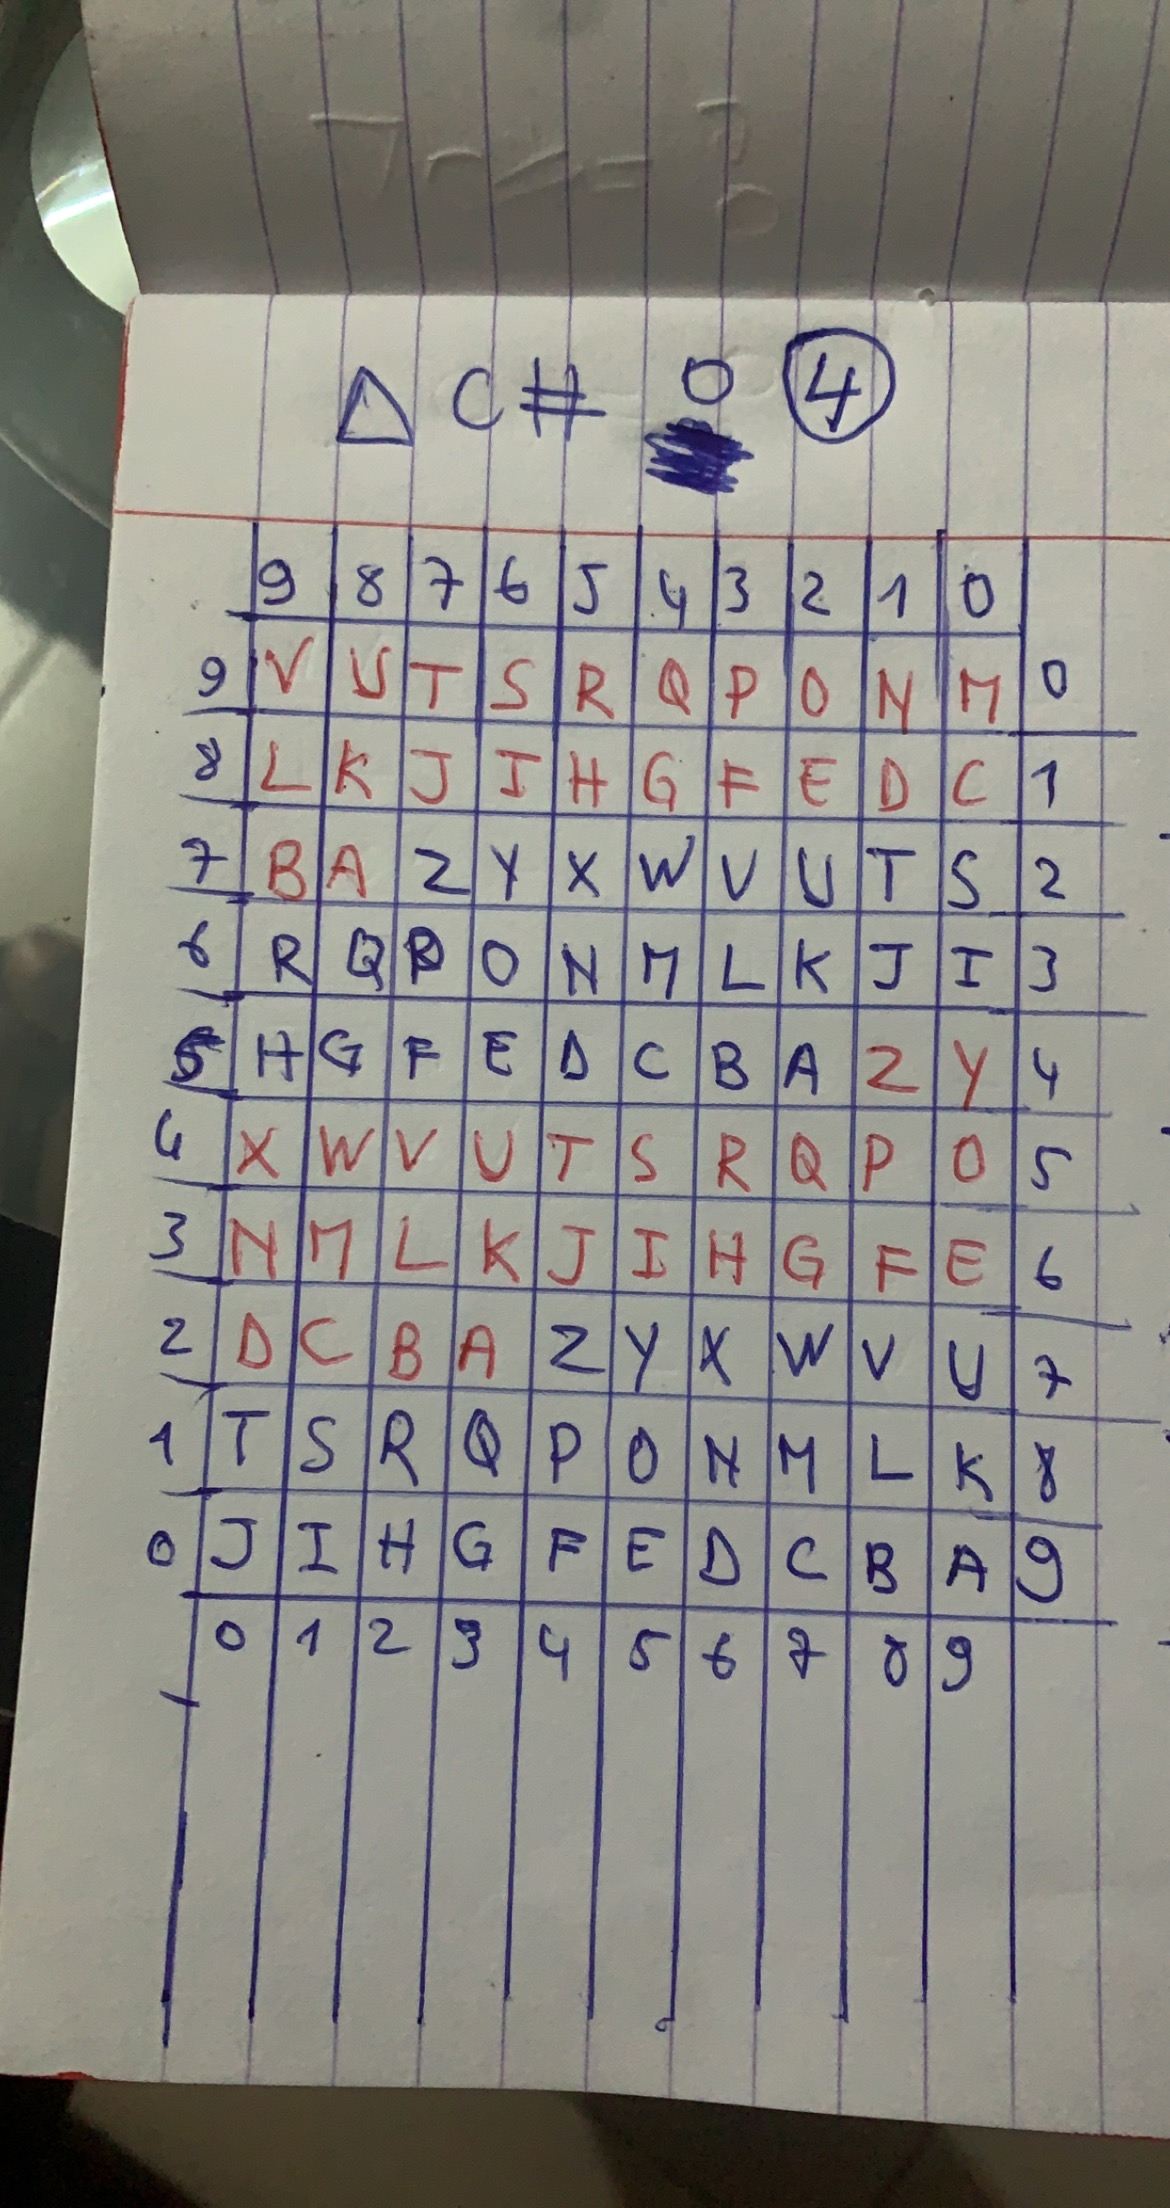 △ C # 0 ④
9 8 7 6 5 4 3 2 1 0
9 V U T S R Q P O N M 0
8 L K J I H G F E D C 1
7 B A Z Y X W V U T S 2
6 R Q P O N M L K J I 3
5 H G F E D C B A Z Y 4
4 X W V U T S R Q P O 5
3 N M L K J I H G F E 6
2 D C B A Z Y X W V U 7
1 T S R Q P O N M L K 8
0 J I H G F E D C B A 9
0 1 2 3 4 5 6 7 8 9